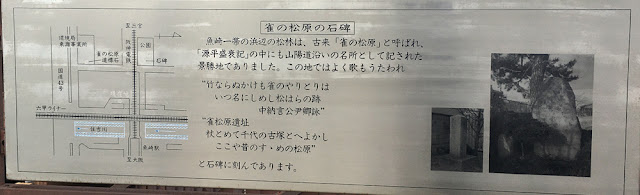 雀の松原の石碑
魚崎一帯の浜辺の松林は、古来「雀の松原」と呼ばれ、
「源平盛衰記」の中にも山陽道沿いの名所として記された
景勝地でありました。この地ではよく歌もうたわれ
“竹ならぬかけも雀のやりとりは
いつ名にしめし松はらの跡
中納言公尹卿詠”
“雀松原遺址
杖とめて千代の古塚とへよかし
ここや昔のすゞめの松原”
と石碑に刻んであります。
至三宮
環境局
東灘事業所
阪神電鉄
公園
石碑
雀の松原
遺標石
国道43号
六甲ライナー
住吉川
魚崎駅
至大阪